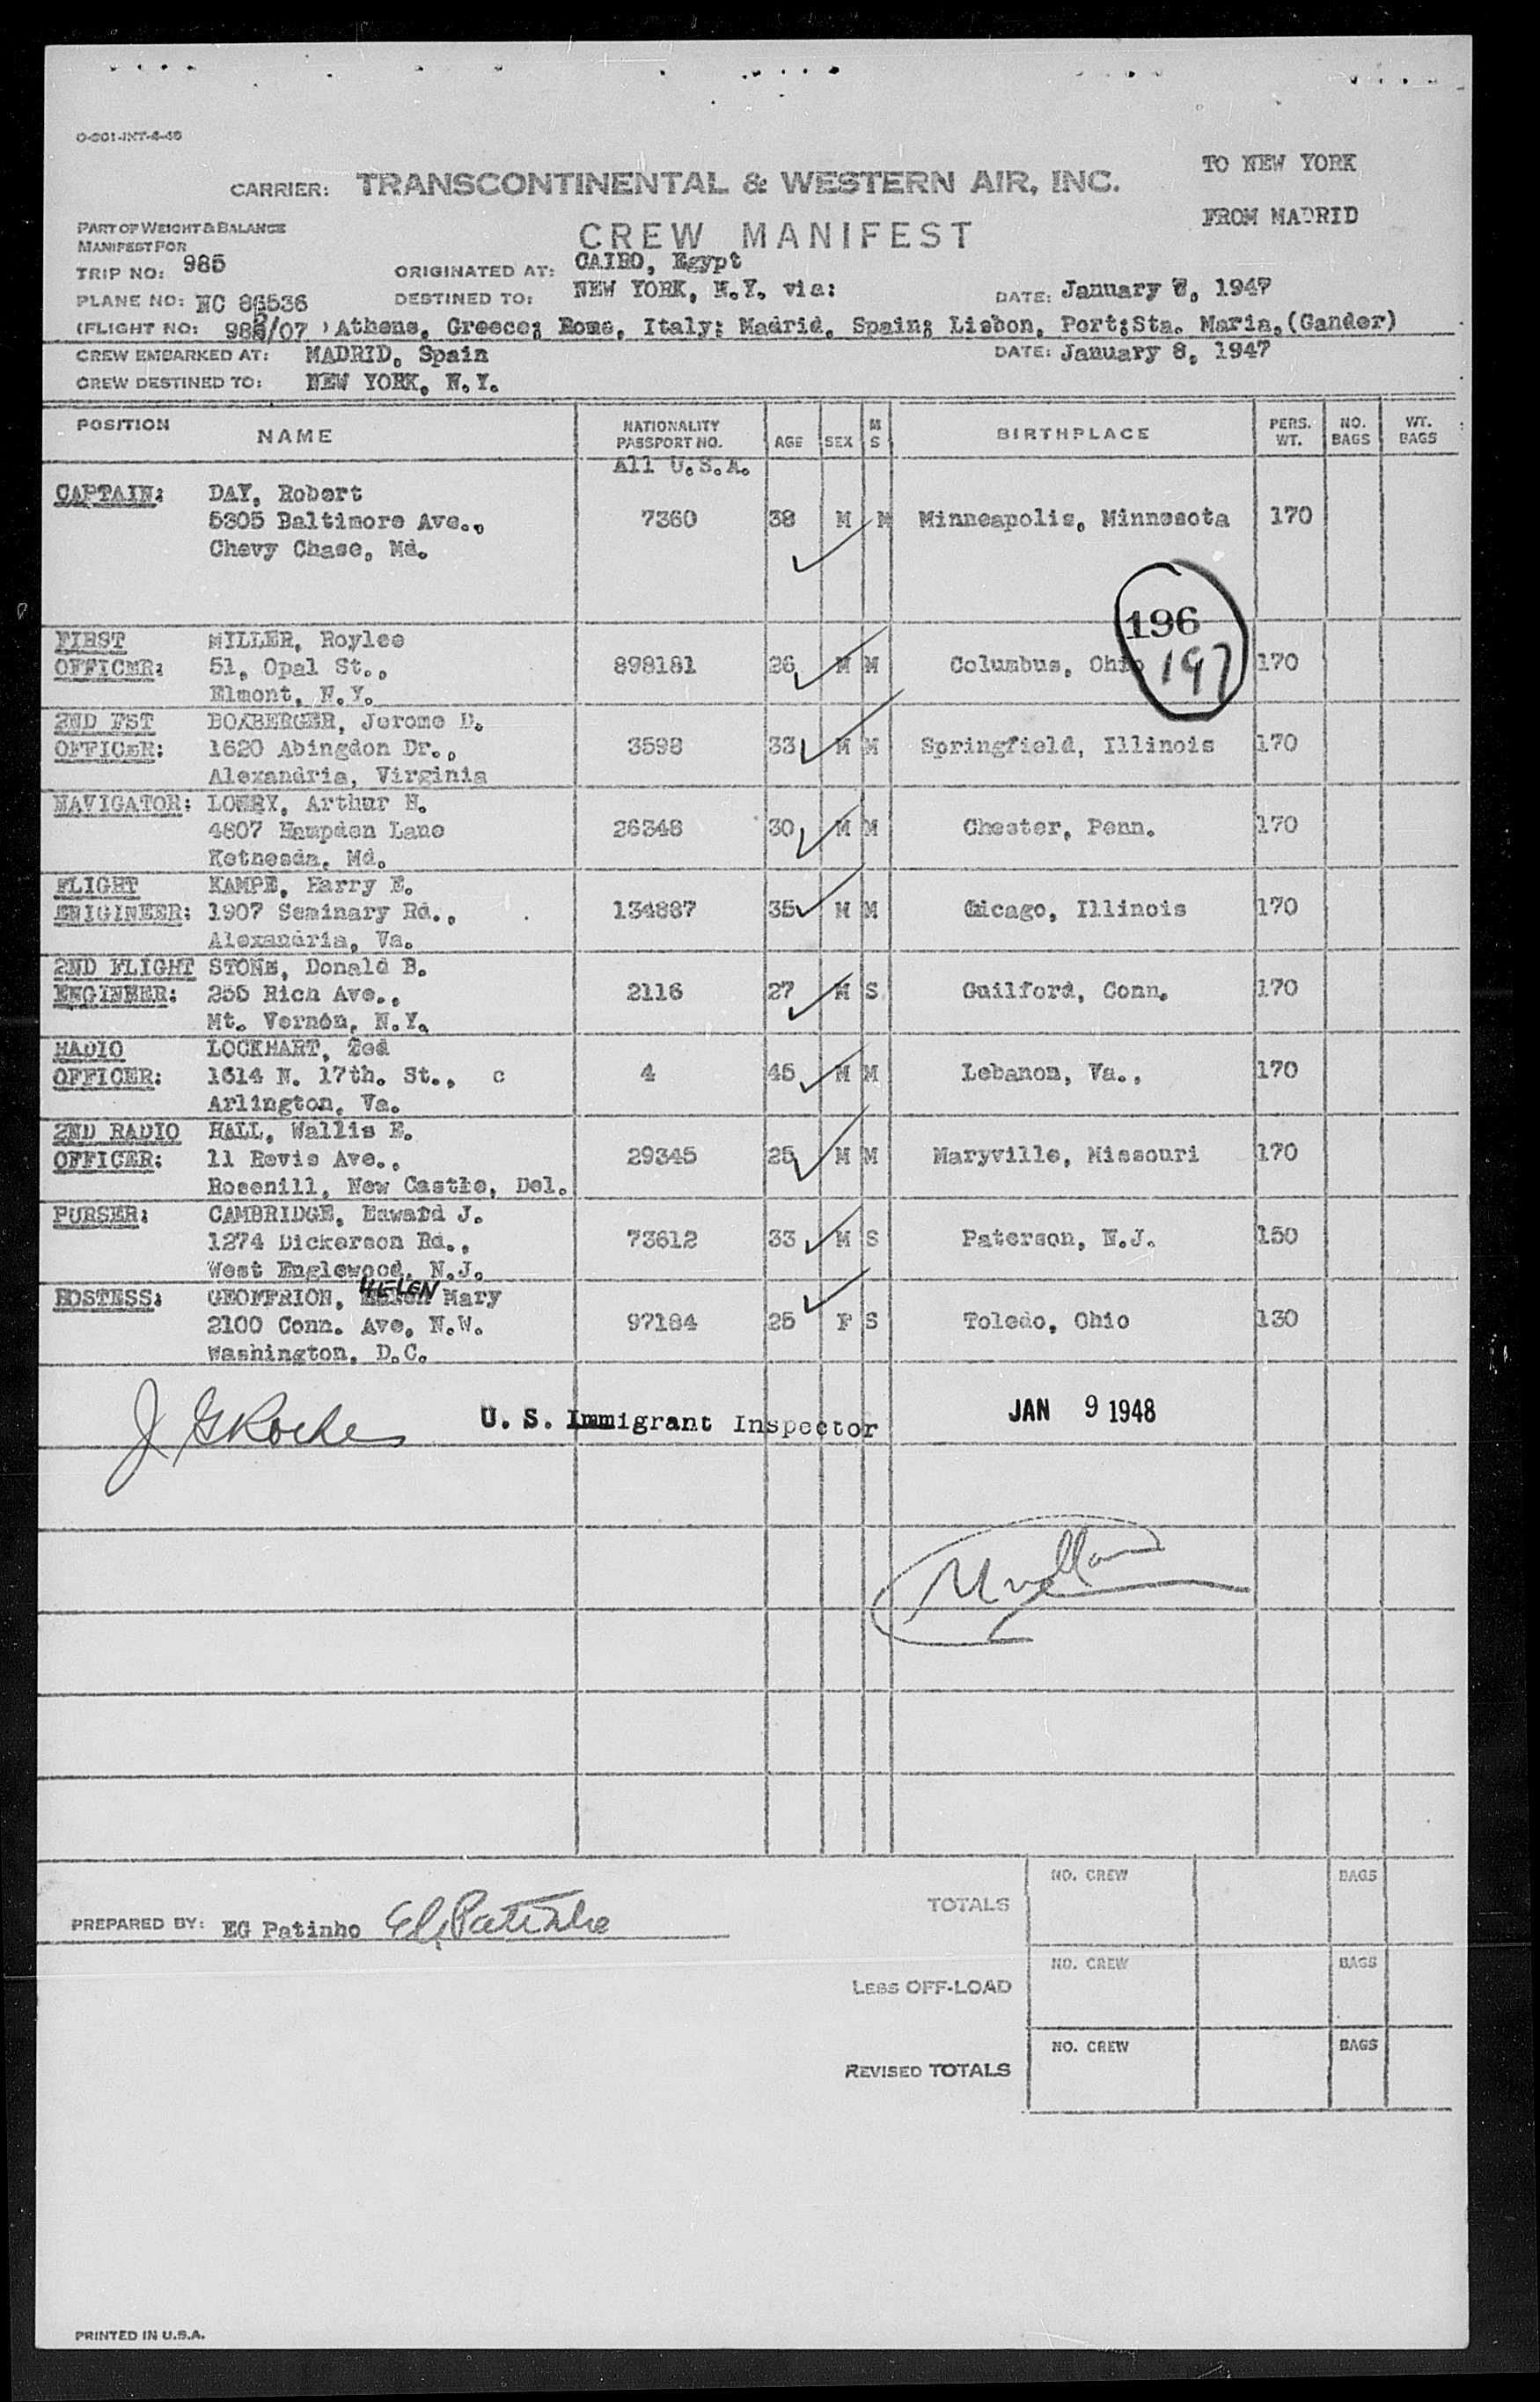 O-901-INT-4-46
TO NEW YORK
CARRIER: TRANSCONTINENTAL & WESTERN AIR, INC.
FROM MADRID
PART OF WEIGHT & BALANCE
MANIFEST FOR
CREW MANIFEST
TRIP NO: 985
ORIGINATED AT: CAIRO, Egypt
PLANE NO: NC 86536
DESTINED TO: NEW YORK, N.Y. via:
DATE: January 8, 1947
(FLIGHT NO: 985/07 ) Athens, Greece; Rome, Italy; Madrid, Spain; Lisbon, Port; Sta. Maria, (Gander)
CREW EMBARKED AT: MADRID, Spain
DATE: January 8, 1947
CREW DESTINED TO: NEW YORK, N.Y.
POSITION NAME NATIONALITY PASSPORT NO. AGE SEX M S BIRTHPLACE PERS. WT. NO. BAGS WT. BAGS
All U.S.A.
CAPTAIN: DAY, Robert
5305 Baltimore Ave., 7360 38 M M Minneapolis, Minnesota 170
Chevy Chase, Md.
196
197
FIRST MILLER, Roylee
OFFICER: 51, Opal St., 898181 26 M M Columbus, Ohio 170
Elmont, N.Y.
2ND FST BOXBERGER, Jerome D.
OFFICER: 1620 Abingdon Dr., 3598 33 M M Springfield, Illinois 170
Alexandria, Virginia
NAVIGATOR: LOWRY, Arthur H.
4807 Hampden Lane 26348 30 M M Chester, Penn. 170
Bethesda, Md.
FLIGHT KAMPE, Harry E.
ENIGINEER: 1907 Seminary Rd., 134887 35 M M Chicago, Illinois 170
Alexandria, Va.
2ND FLIGHT STONE, Donald B.
ENGINEER: 255 Rich Ave., 2116 27 M S Guilford, Conn. 170
Mt. Vernon, N.Y.
RADIO LOCKHART, Ted
OFFICER: 1614 N. 17th. St., c 4 45 M M Lebanon, Va., 170
Arlington, Va.
2ND RADIO HALL, Wallis E.
OFFICER: 11 Revis Ave., 29345 25 M M Maryville, Missouri 170
Rosehill, New Castle, Del.
PURSER: CAMBRIDGE, Edward J.
1274 Dickerson Rd., 73612 33 M S Paterson, N.J. 150
West Englewood, N.J.
HELEN
HOSTESS: GEOFFRION, Mary
2100 Conn. Ave, N.W. 97184 25 F S Toledo, Ohio 130
Washington, D.C.
U. S. Immigrant Inspector
JAN 9 1948
TOTALS NO. CREW BAGS
PREPARED BY: EG Patinho EG Patinho
LESS OFF-LOAD NO. CREW BAGS
REVISED TOTALS NO. CREW BAGS
PRINTED IN U.S.A.